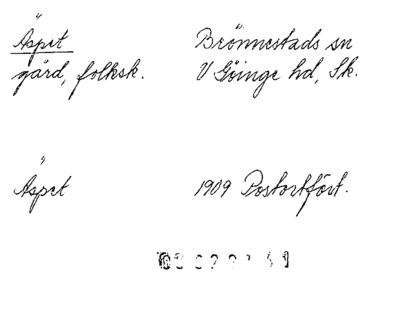 Äspet
Brönnestads sn
gård, folksk.
V Göinge hd, Sk.
Äspet
1909 Postortfört.